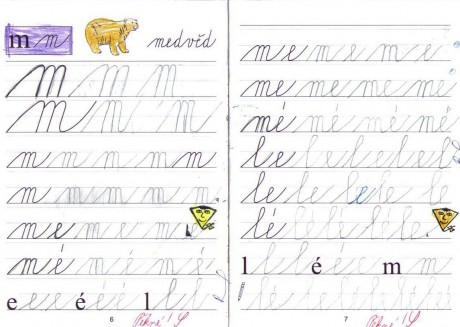 m m medvěd
m m m m
m m m m
m m m m m m
m m m m m
m e m e m e
m é m é m é
e e e e é é é l l l
6 Pěkné!
m e m e m e m e
me me me me me
mé mé mé mé mé
le le le le le le
le le le le l
lé lé lé lé le
l l é é e m m
lé lé lé lé lé lé
7 Pěkné!